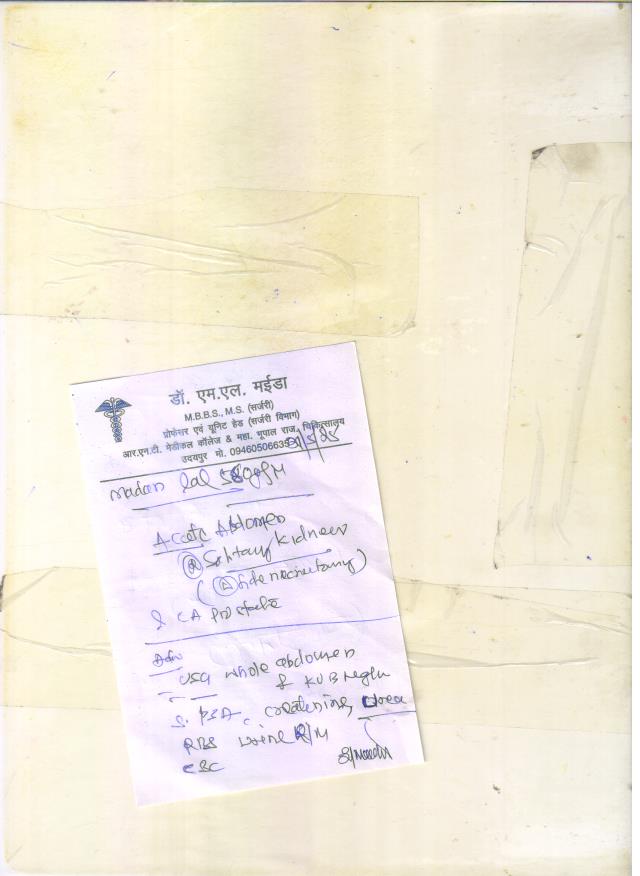 डॉ. एम.एल. मईडा
M.B.B.S., M.S. (सर्जरी)
प्रोफेसर एवं यूनिट हेड (सर्जरी विभाग)
आर.एन.टी. मेडीकल कॉलेज & महा. भूपाल राज. चिकित्सालय
उदयपुर मो. 09460506639
Madan lal
Acute Abdomen
(R) Solitary Kidney
& CA Prostate
Adv
USG whole abdomen
& KUB region
S. PSA, creatinine, Urea
RBS urine R/M
CBC